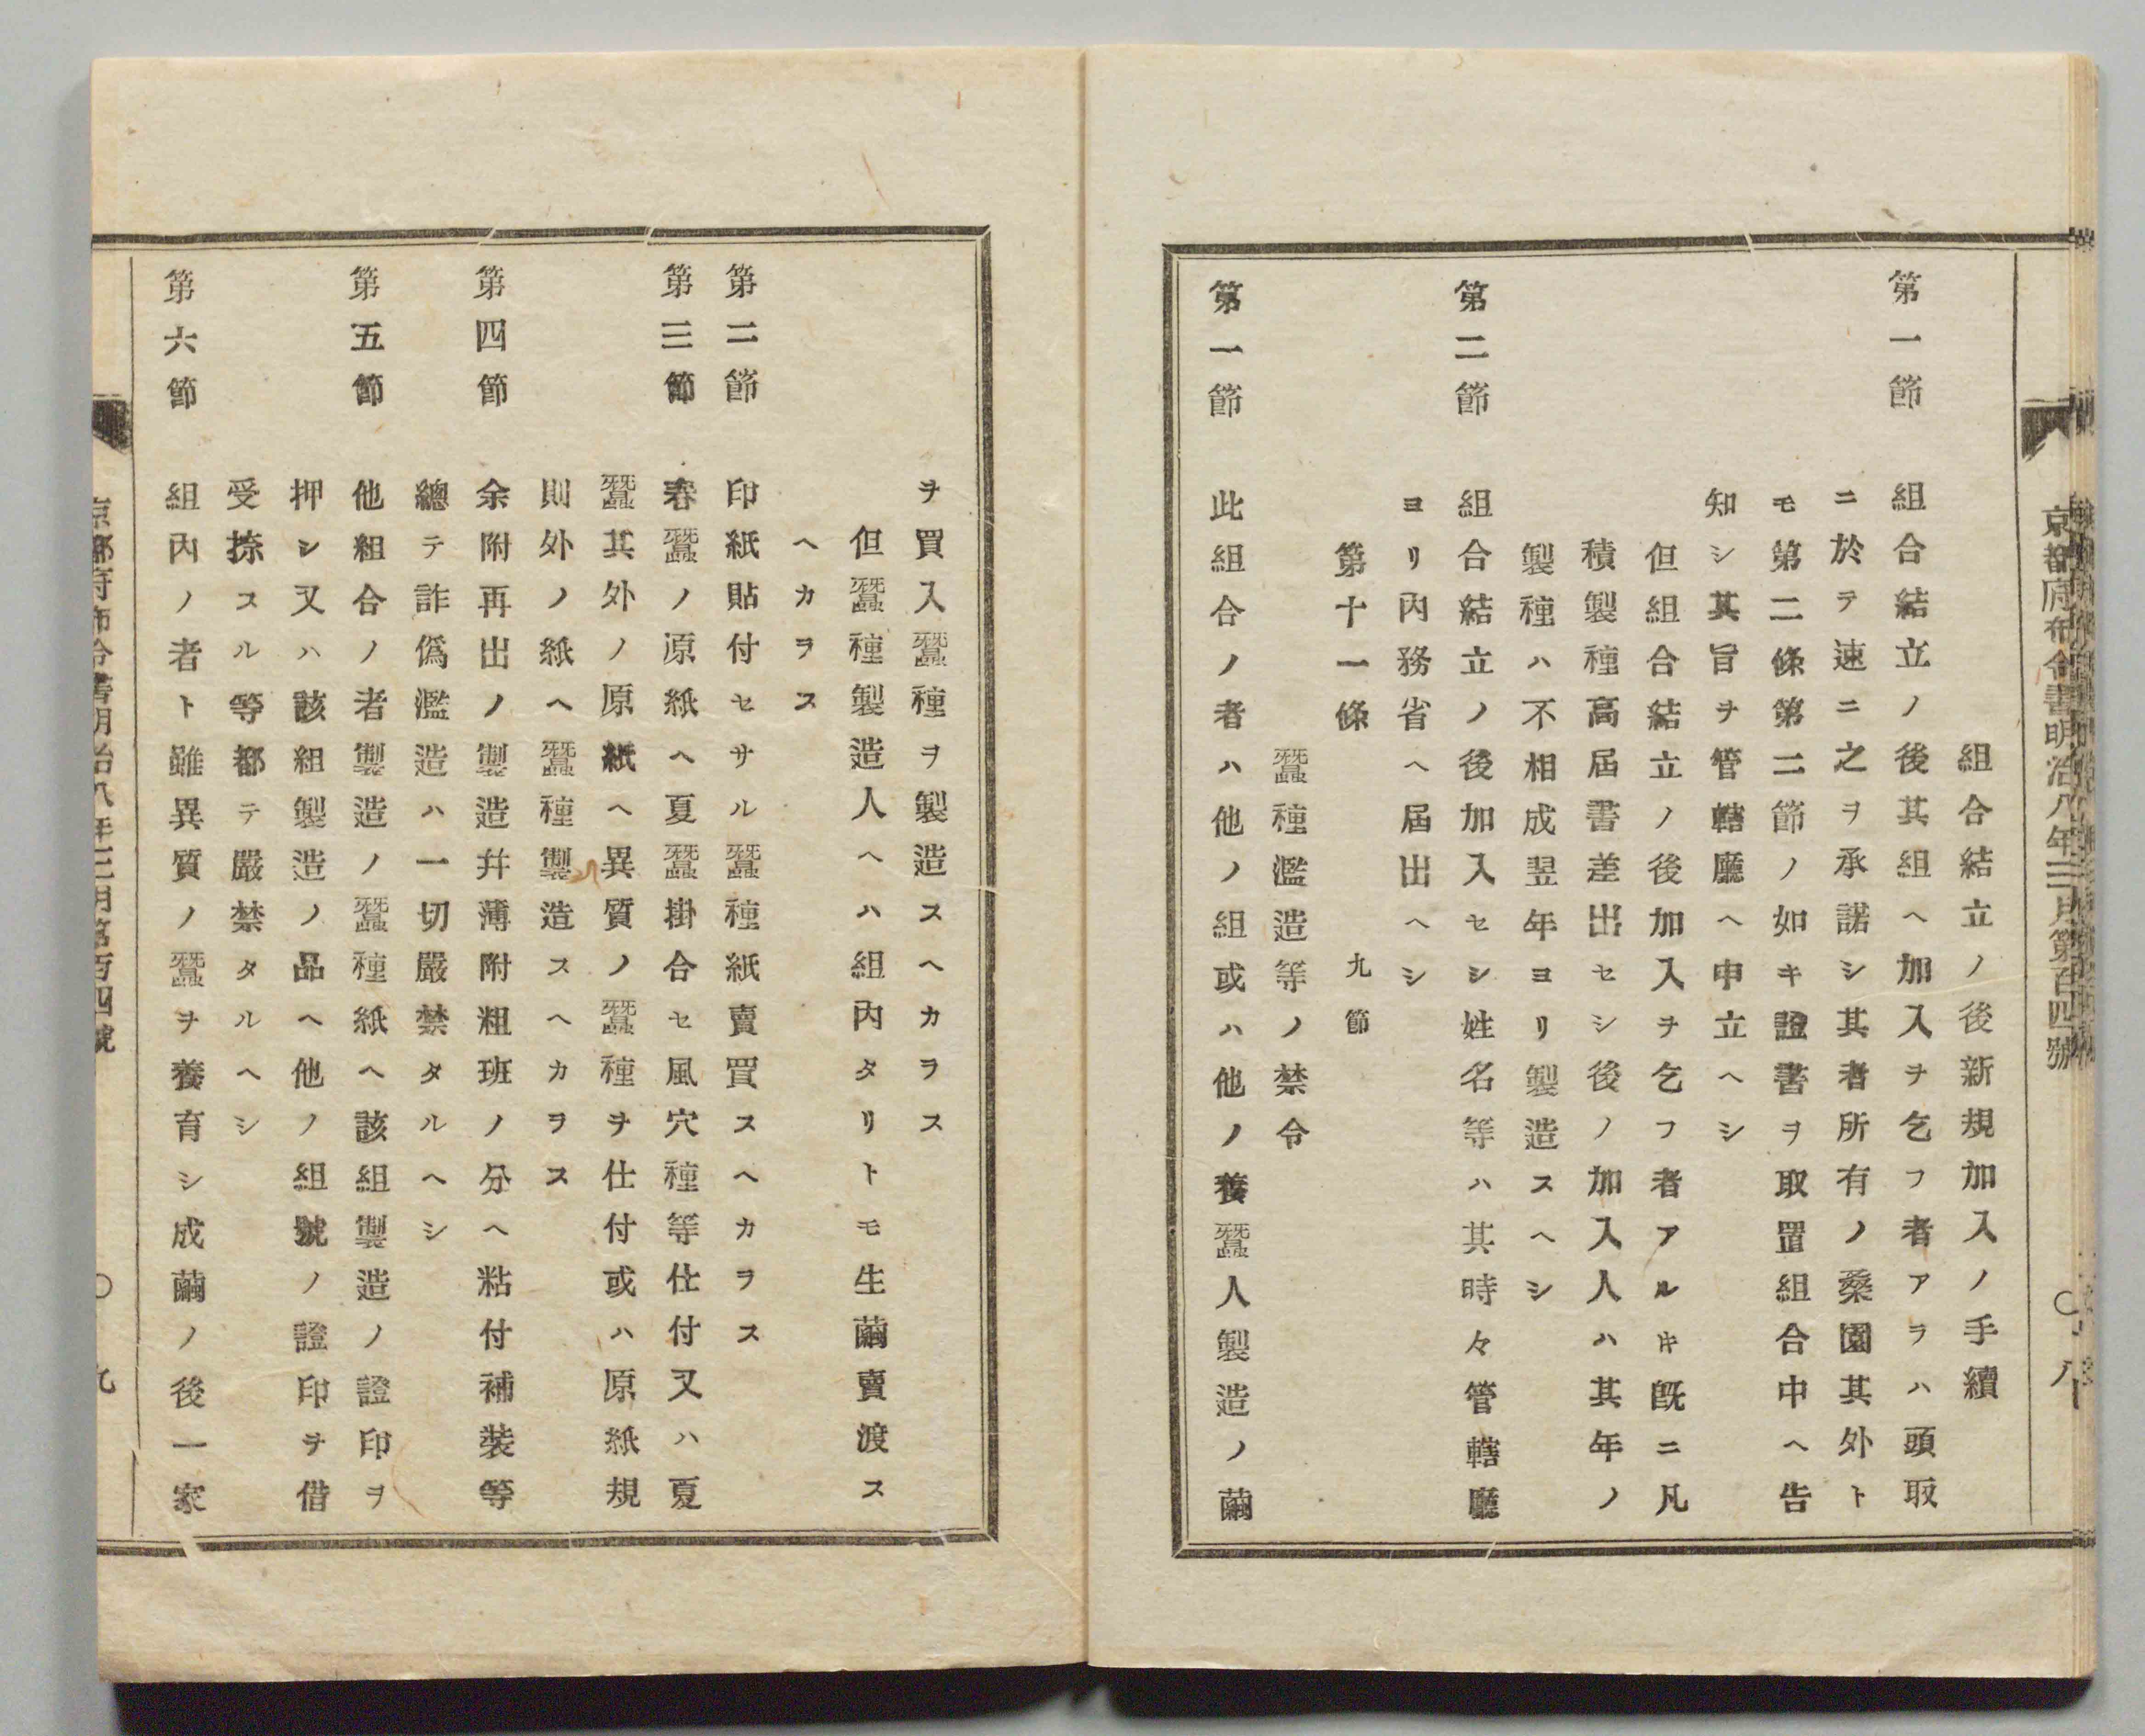 京都府布令書明治八年三月第百四號
〇八
組合結立ノ後新規加入ノ手續
第一節 組合結立ノ後其組ヘ加入ヲ乞フ者アラハ頭取
ニ於テ速ニ之ヲ承諾シ其者所有ノ桑園其外ト
モ第二條第二節ノ如キ證書ヲ取置組合中ヘ告
知シ其旨ヲ管轄廳ヘ申立ヘシ
但組合結立ノ後加入ヲ乞フ者アルキ既ニ凡
積製種高屆書差出セシ後ノ加入人ハ其年ノ
製種ハ不相成翌年ヨリ製造スヘシ
第二節 組合結立ノ後加入セシ姓名等ハ其時々管轄廳
ヨリ內務省ヘ屆出ヘシ
第十一條 九節
蠶種濫造等ノ禁令
第一節 此組合ノ者ハ他ノ組或ハ他ノ養蠶人製造ノ繭
ヲ買入蠶種ヲ製造スヘカラス
但蠶種製造人ヘハ組內タリトモ生繭賣渡ス
ヘカラス
第二節 印紙貼付セサル蠶種紙賣買スヘカラス
第三節 春蠶ノ原紙ヘ夏蠶掛合セ風穴種等仕付又ハ夏
蠶其外ノ原紙ヘ異質ノ蠶種ヲ仕付或ハ原紙規
則外ノ紙ヘ蠶種製造スヘカラス
第四節 余附再出ノ製造幷薄附粗班ノ分ヘ粘付補裝等
總テ詐僞濫造ハ一切嚴禁タルヘシ
第五節 他組合ノ者製造ノ蠶種紙ヘ該組製造ノ證印ヲ
押シ又ハ該組製造ノ品ヘ他ノ組號ノ證印ヲ借
受捺スル等都テ嚴禁タルヘシ
第六節 組內ノ者ト雖異質ノ蠶ヲ養育シ成繭ノ後一家
京都府布令書明治八年三月第百四號
〇九